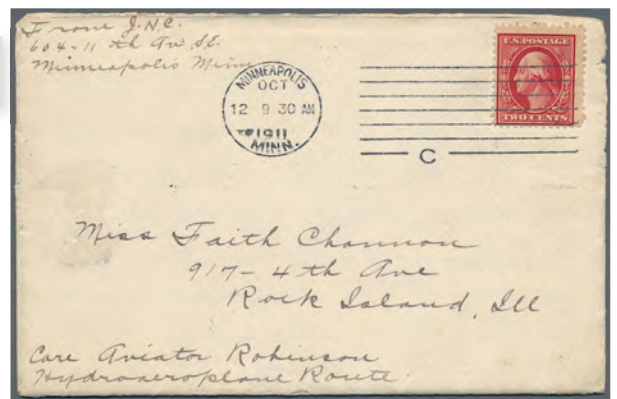 From J.N.C.
604-11 th Av S.E.
Minneapolis Minn
MINNEAPOLIS
OCT
12 9 30 AM
1911
MINN.
C
U.S. POSTAGE
TWO CENTS
Miss Faith Channon
917-4th Ave
Rock Island, Ill
Care Aviator Robinson
Hydroaeroplane Route.